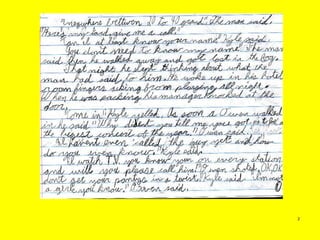 everywhere between I to I grand. The man said.
Here's my card give me a call."
"Can I at least know your name? Kyle said.
"You don't need to know my name. The man
said. Then he walked away and got lost in the fog.
That night he kept thinking about what the
man had said to him. He woke up in his hotel
room fingers aking from playing all night.
When he was packing his manager knocked at the
door.
"Come in" Kyle yelled. As soon as Owen walked
in he said "Why didnt you tell me youve got
the biggest concert of the year." Owen said.
"I havent even called the guy yet and how
do you even know." Kyle said.
"I watch T.V. you know your on every station
and will you please call him!" Owen shouted. "OK OK
don't get your panties in a twist. Kyle said "Im not
a girl you know." Owen said.
2